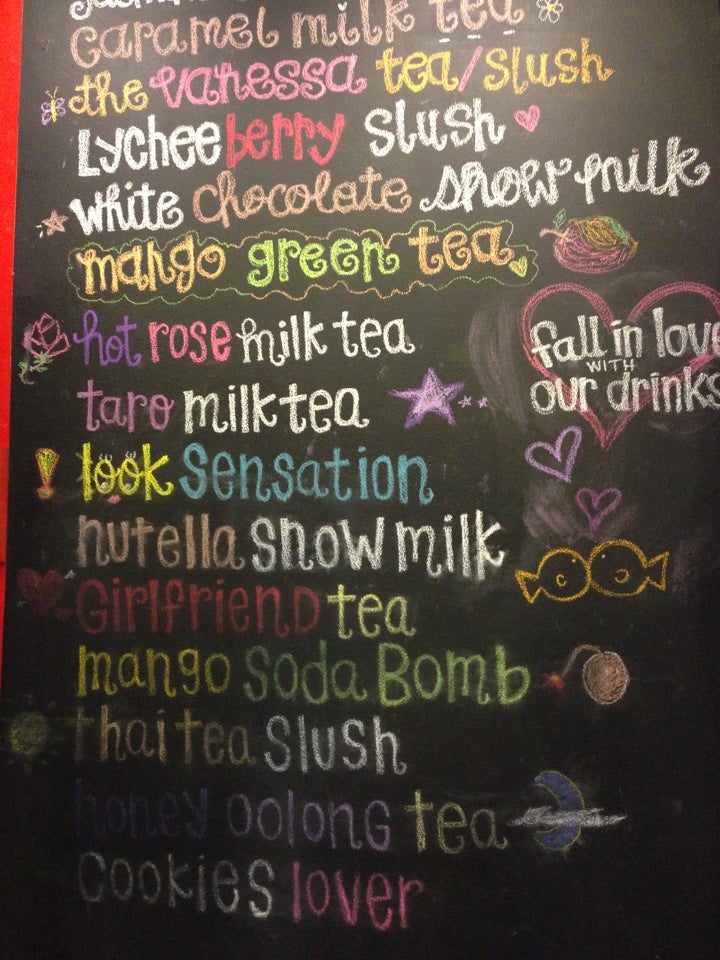 caramel milk tea
the vanessa tea/slush
Lychee berry slush
white chocolate snow milk
mango green tea
hot rose milk tea
taro milk tea
look sensation
nutella snow milk
Girlfriend tea
mango soda Bomb
thai tea slush
honey oolong tea
cookies lover
fall in love
WITH
our drinks